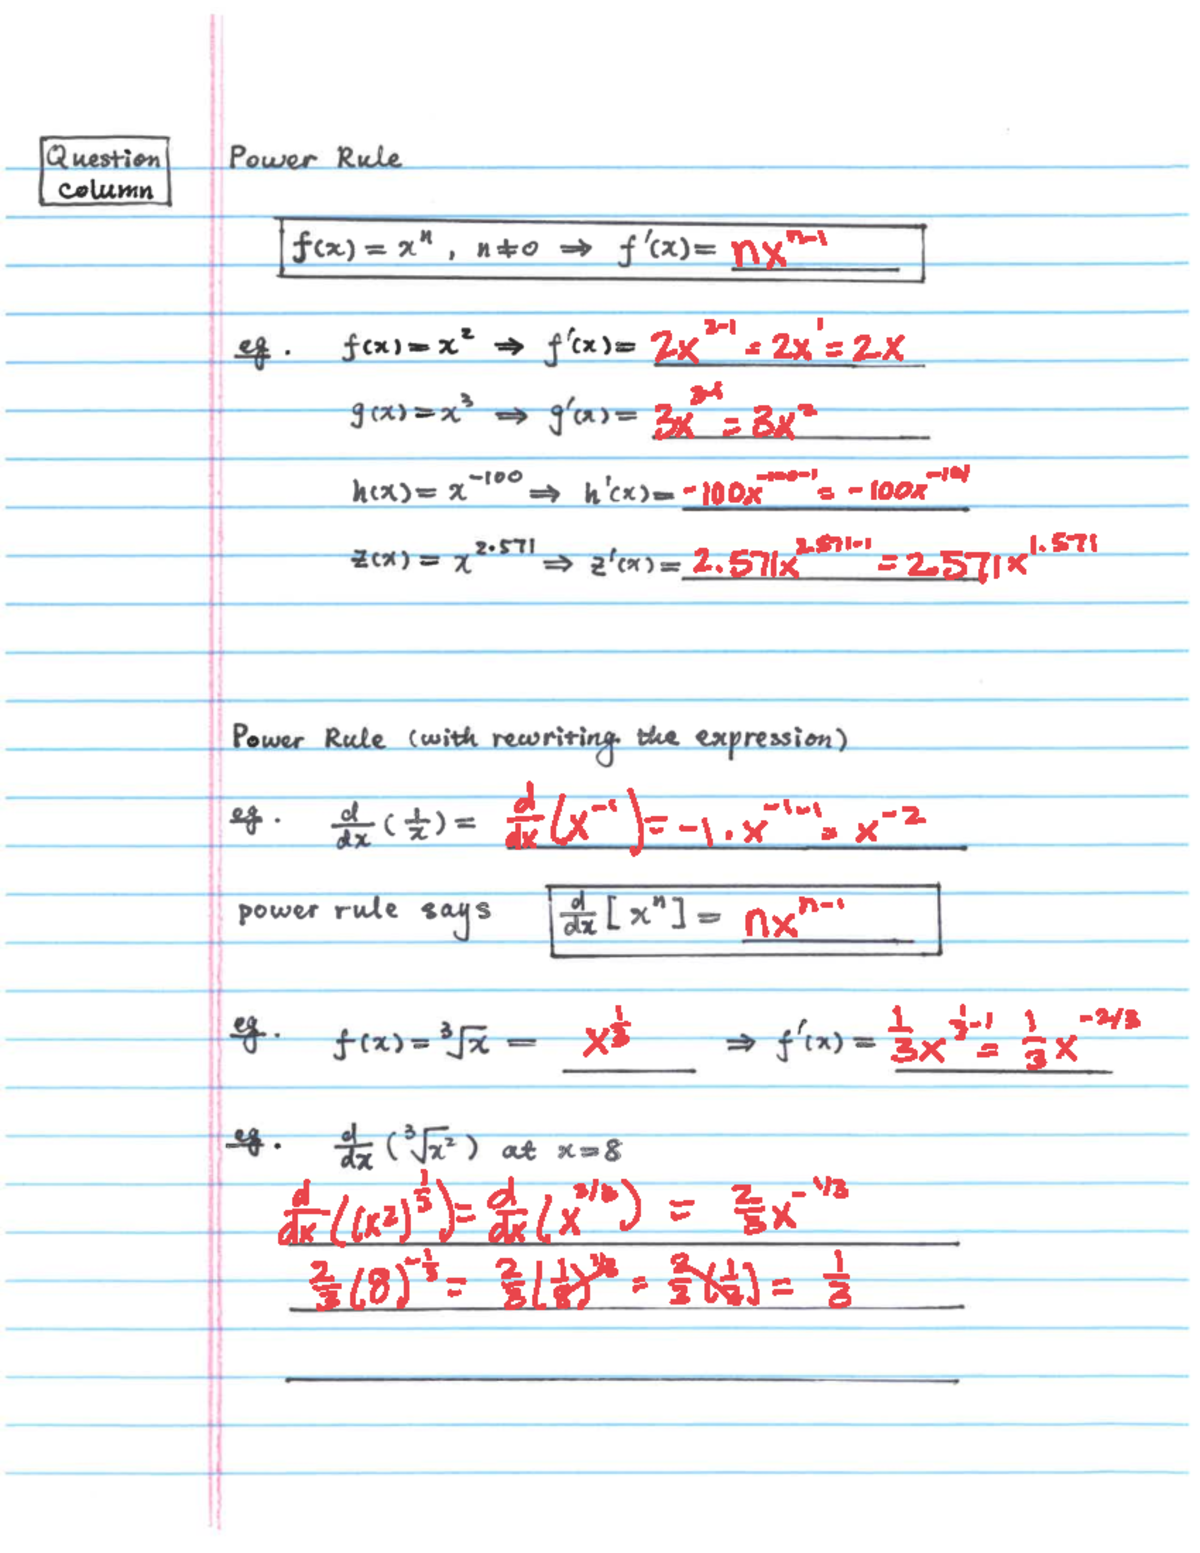 Question
column
Power Rule
f(x) = xⁿ, n ≠ 0 ⇒ f'(x) = nx^(n-1)
eg. f(x) = x² ⇒ f'(x) = 2x^(2-1) = 2x^1 = 2x
g(x) = x³ ⇒ g'(x) = 3x^(3-1) = 3x²
h(x) = x^(-100) ⇒ h'(x) = -100x^(-100-1) = -100x^(-101)
z(x) = x^(2.571) ⇒ z'(x) = 2.571x^(2.571-1) = 2.571x^(1.571)
Power Rule (with rewriting the expression)
eg. d/dx (1/x) = d/dx (x^(-1)) = -1 · x^(-1-1) = x^(-2)
power rule says d/dx [xⁿ] = nx^(n-1)
eg. f(x) = ³√x = x^(1/3) ⇒ f'(x) = 1/3 x^(1/3-1) = 1/3 x^(-2/3)
eg. d/dx (³√x²) at x = 8
d/dx ((x²)^(1/3)) = d/dx (x^(2/3)) = 2/3 x^(-1/3)
2/3 (8)^(-1/3) = 2/3 (1/8)^(1/3) = 2/3 (1/2) = 1/3